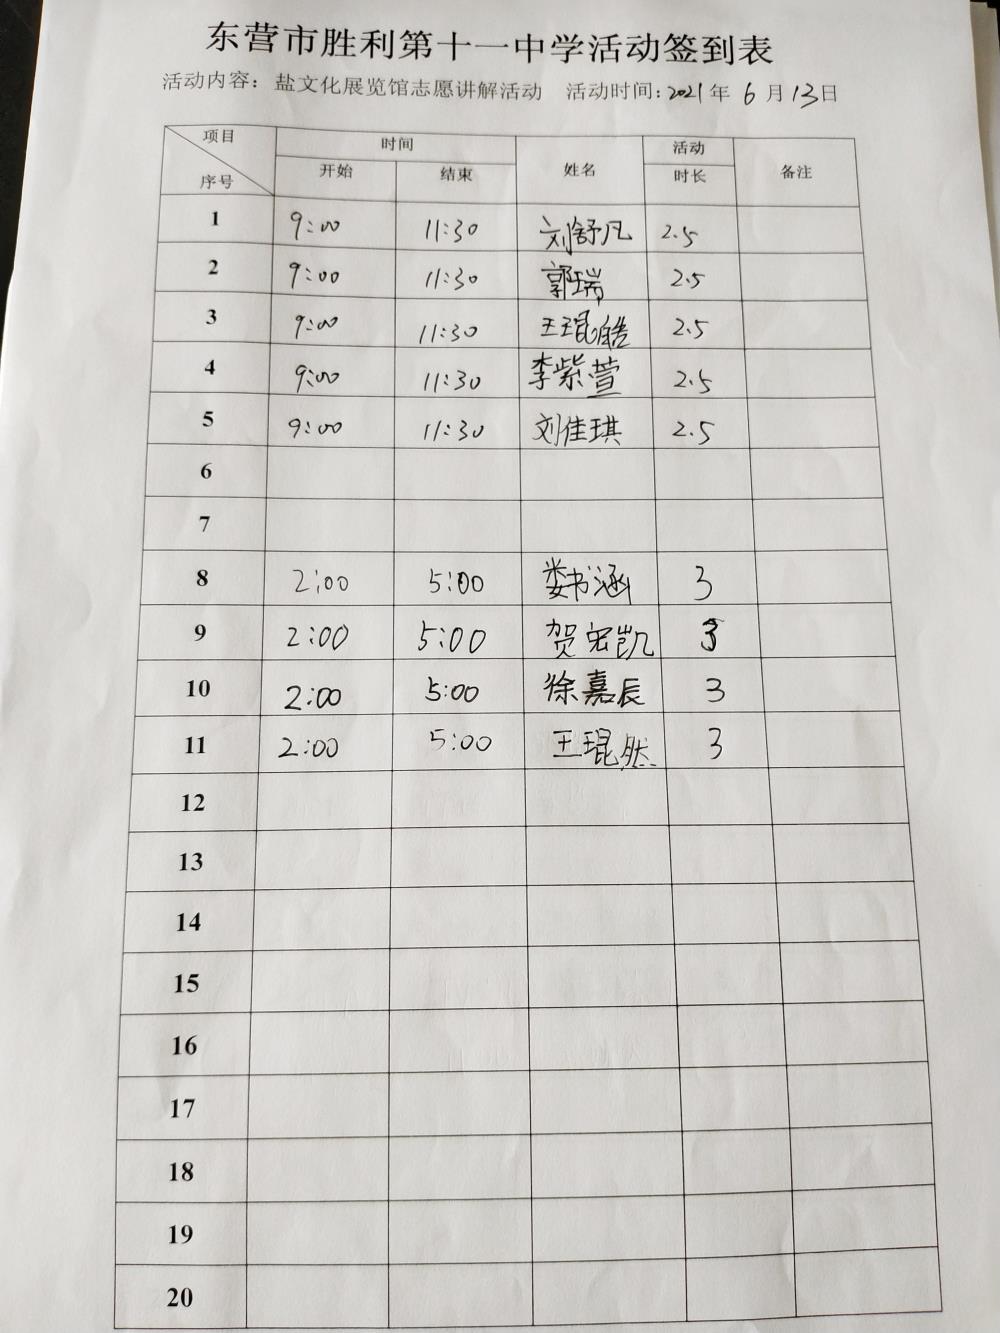 东营市胜利第十一中学活动签到表
活动内容：盐文化展览馆志愿讲解活动 活动时间：2021年6月13日
项目 时间 姓名 活动 备注
序号 开始 结束 时长
1 9:00 11:30 刘舒凡 2.5
2 9:00 11:30 郭瑞 2.5
3 9:00 11:30 王琨皓 2.5
4 9:00 11:30 李紫萱 2.5
5 9:00 11:30 刘佳琪 2.5
6
7
8 2:00 5:00 娄书涵 3
9 2:00 5:00 贺宏凯 3
10 2:00 5:00 徐嘉辰 3
11 2:00 5:00 王琨然 3
12
13
14
15
16
17
18
19
20